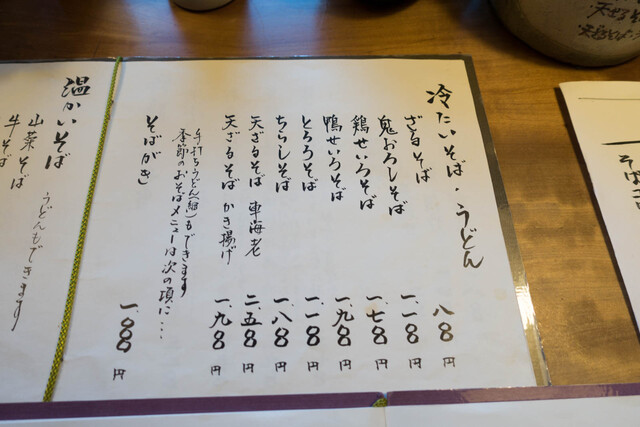 冷たいそば・うどん
ざるそば 八〇〇円
鬼おろしそば 一、一〇〇円
鶏せいろそば 一、七〇〇円
鴨せいろそば 一、九〇〇円
とろろそば 一、一〇〇円
ちらしそば 一、八〇〇円
天ざるそば 車海老 二、五〇〇円
天ざるそば かき揚げ 一、九〇〇円
手打ちうどん(細)もできます
季節のおそばメニューは次の項に・・・
そばがき 一、〇〇〇円
温かいそば
うどんもできます
山菜そば
牛そば